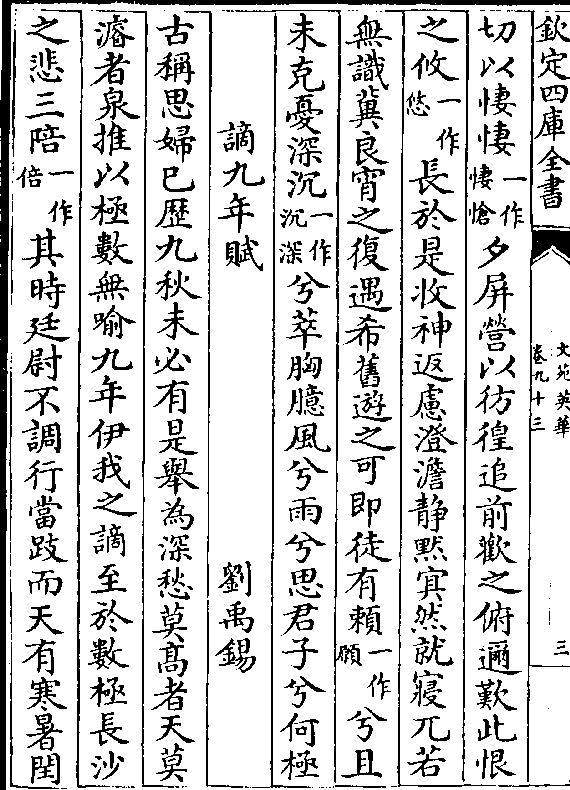 欽定四庫全書
文苑英華
卷九十三
三
切以悽悽一作悽愴夕屏營以彷徨追前歡之俯邇歎此恨
之攸一作悠長於是收神返慮澄澹静黙寘然就寢兀若
無識冀良宵之復遇希舊遊之可即徒有頼一作願兮且
未克憂深沉一作沉深兮萃胸臆風兮雨兮思君子兮何極
謫九年賦
劉禹錫
古稱思婦已歴九秋未必有是舉為深愁莫髙者天莫
濬者泉推以極數無喻九年伊我之謫至於數極長沙
之悲三陪一作倍其時廷尉不調行當跂而天有寒暑閏